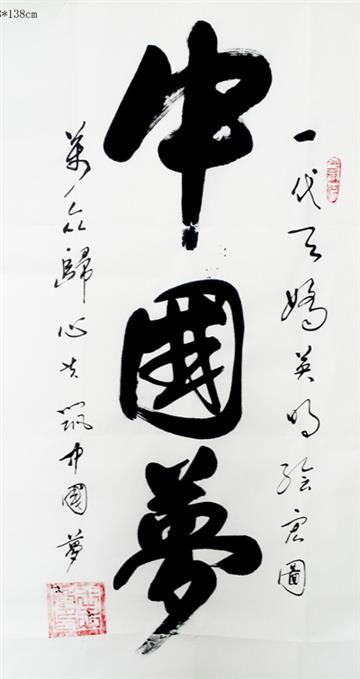 一代天嬌英明繪宏圖
中國夢
萬众歸心共築中國夢
*138cm